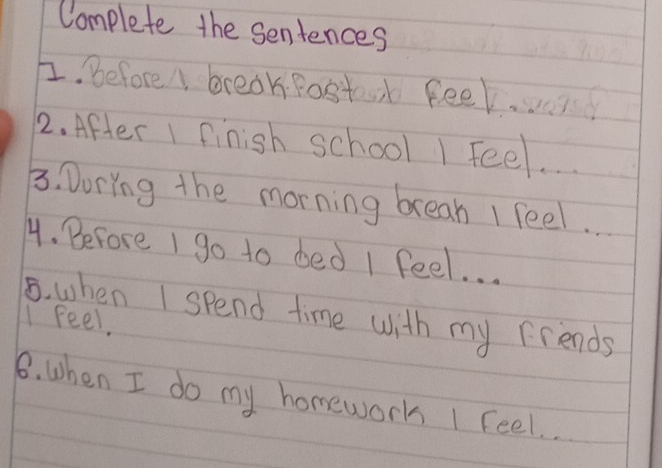 Complete the sentences
1. Before I breakfast I feel.
2. After I finish school I Feel...
3. During the morning break I feel...
4. Before I go to bed I feel...
5. when I spend time with my friends
I feel.
6. when I do my homework I feel...